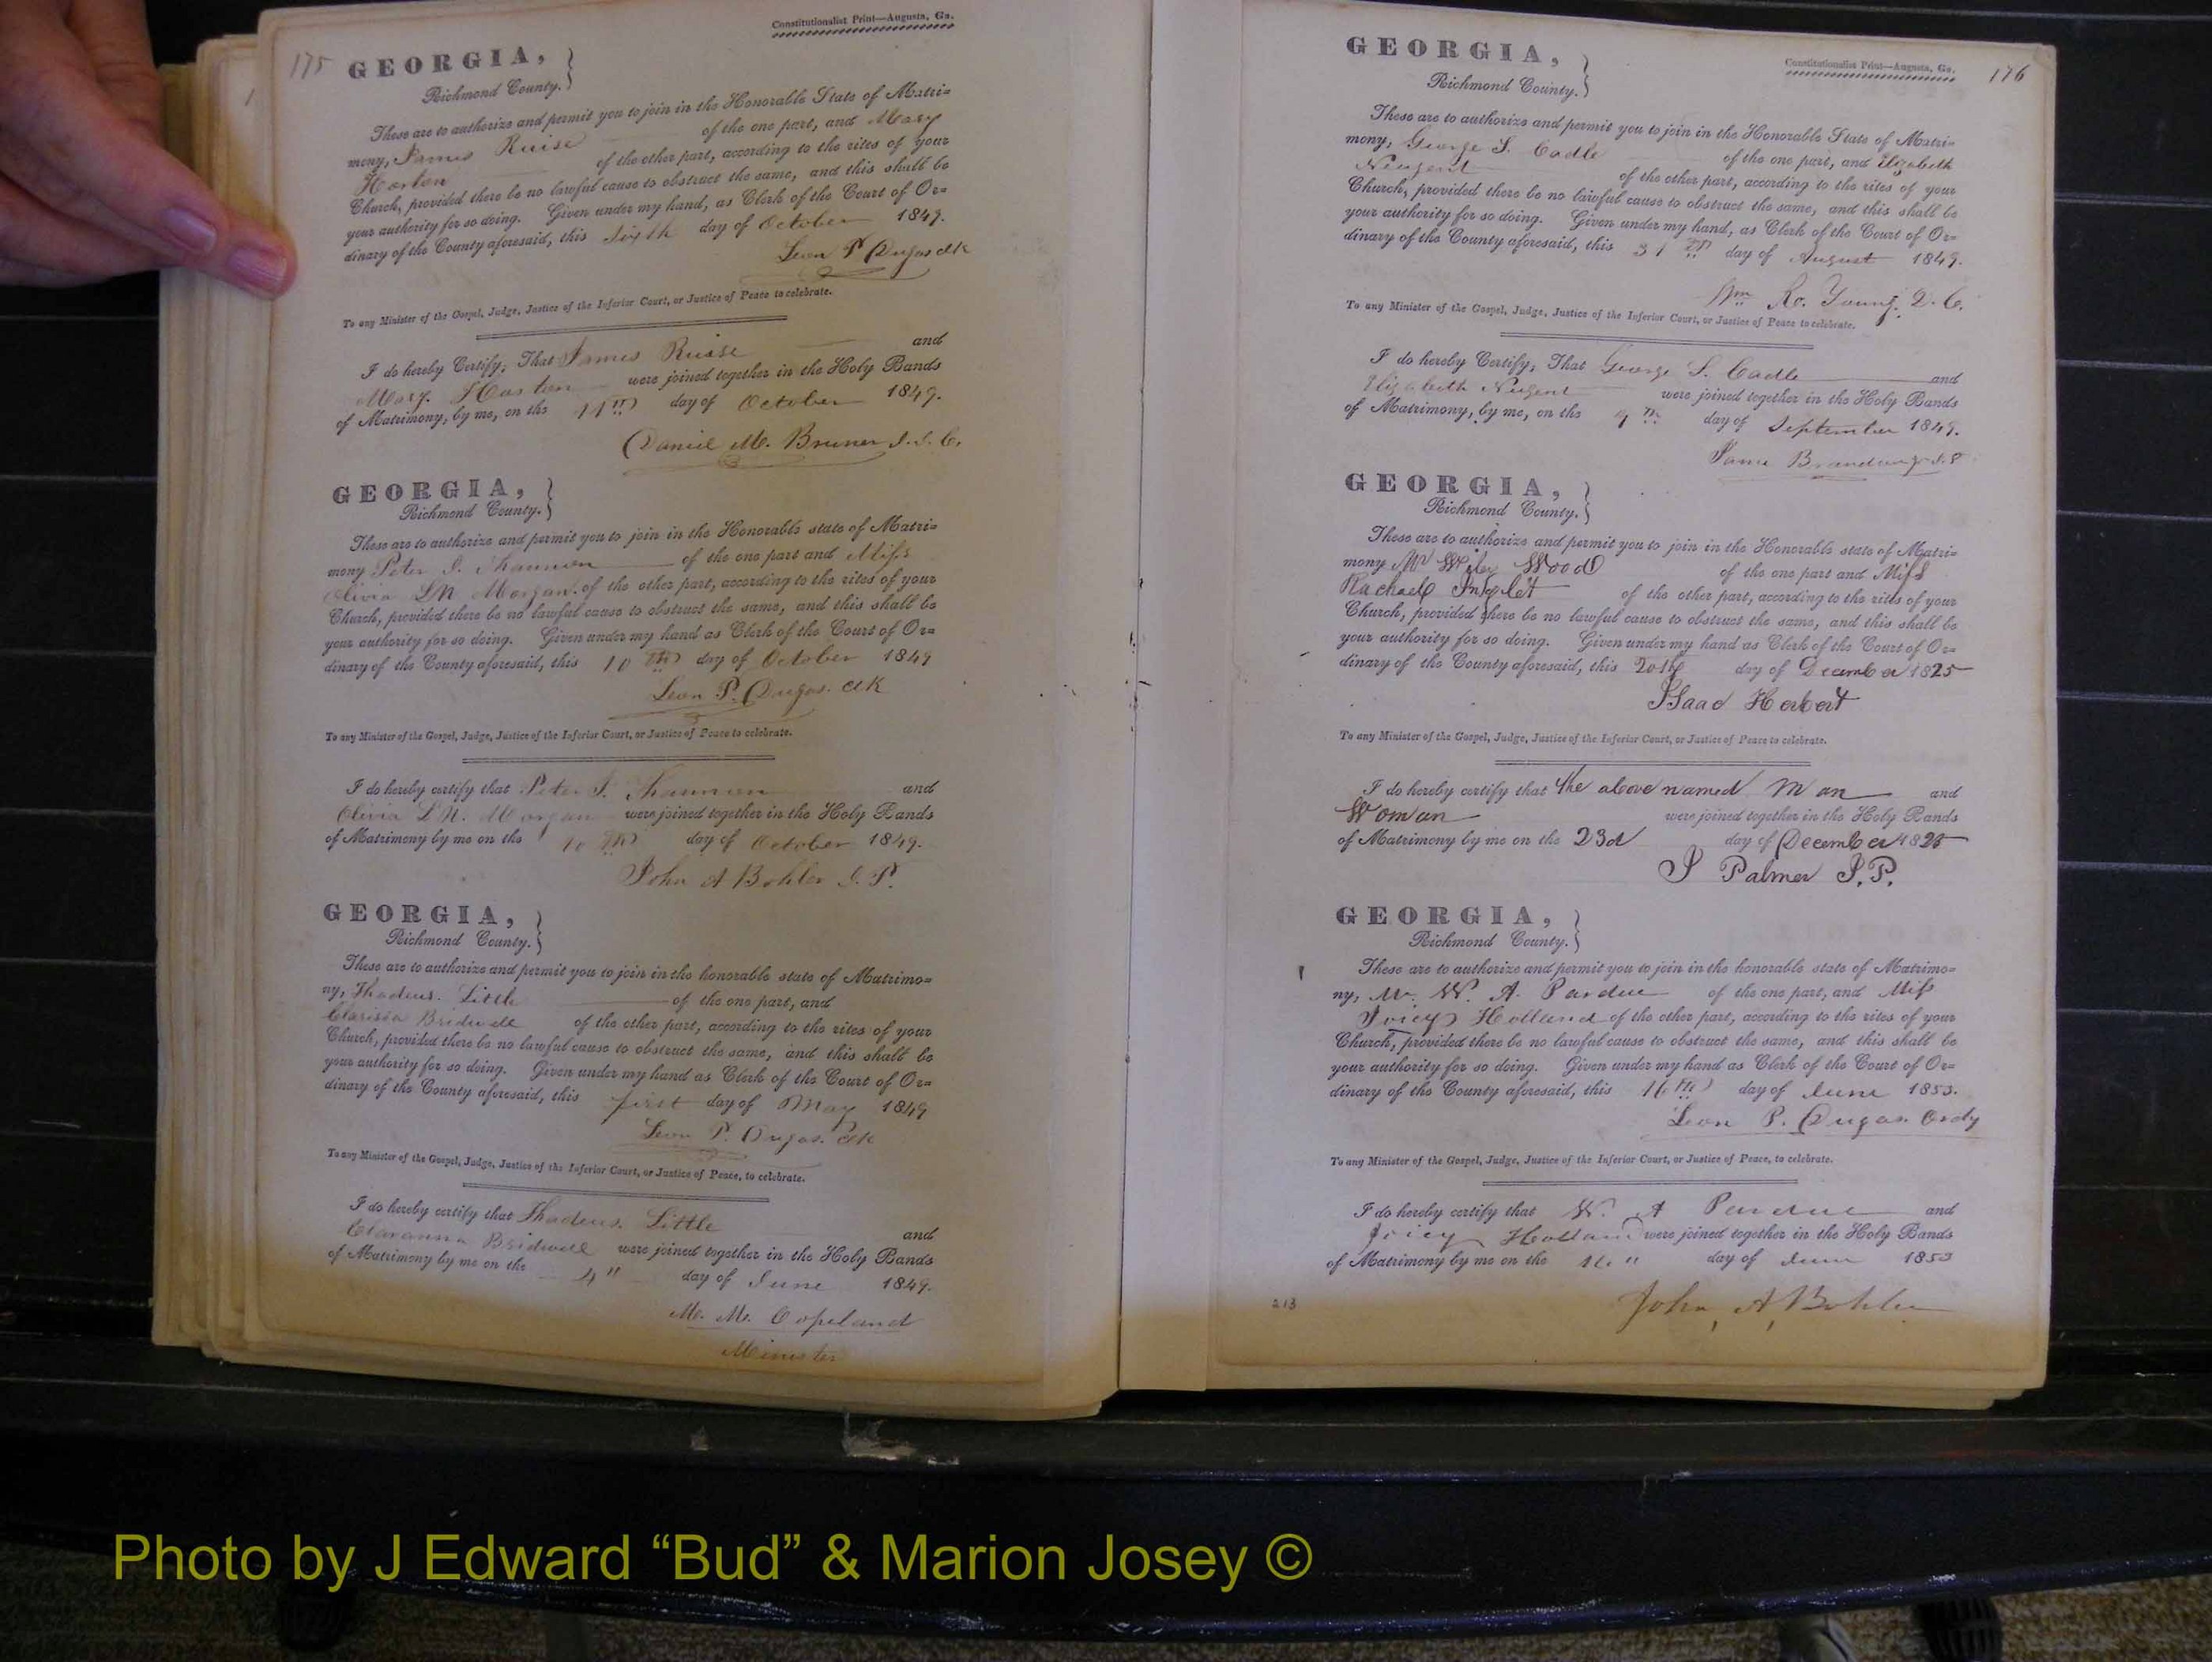 Constitutionalist Print—Augusta, Ga.
175
GEORGIA,
Richmond County.
These are to authorize and permit you to join in the Honorable State of Matri=
mony, James Ruise of the one part, and Mary
Horton of the other part, according to the rites of your
Church, provided there be no lawful cause to obstruct the same, and this shall be
your authority for so doing. Given under my hand, as Clerk of the Court of Or=
dinary of the County aforesaid, this sixth day of October 1849.
Leon P Dugas clk
To any Minister of the Gospel, Judge, Justice of the Inferior Court, or Justice of Peace to celebrate.
I do hereby Certify, That James Ruise and
Mary Horton were joined together in the Holy Bands
of Matrimony, by me, on the 11th day of October 1849.
Daniel M. Bruner J. I. C.
GEORGIA,
Richmond County.
These are to authorize and permit you to join in the Honorable state of Matri=
mony Peter I. Shannon of the one part and Miss
Olivia LN Morgan. of the other part, according to the rites of your
Church, provided there be no lawful cause to obstruct the same, and this shall be
your authority for so doing. Given under my hand as Clerk of the Court of Or=
dinary of the County aforesaid, this 10th day of October 1849
Leon P. Dugas. clk
To any Minister of the Gospel, Judge, Justice of the Inferior Court, or Justice of Peace to celebrate.
I do hereby certify that Peter I. Shannon and
Olivia LN. Morgan were joined together in the Holy Bands
of Matrimony by me on the 10th day of October 1849.
John A Bohler J. P.
GEORGIA,
Richmond County.
These are to authorize and permit you to join in the honorable state of Matrimo=
ny, Thadeus. Little of the one part, and
Clarissa Bridwell of the other part, according to the rites of your
Church, provided there be no lawful cause to obstruct the same, and this shall be
your authority for so doing. Given under my hand as Clerk of the Court of Or=
dinary of the County aforesaid, this first day of May 1849
Leon P. Dugas. clk
To any Minister of the Gospel, Judge, Justice of the Inferior Court, or Justice of Peace, to celebrate.
I do hereby certify that Thadeus. Little and
Bridwell were joined together in the Holy Bands
of Matrimony by me on the 4" day of June 1849.
M. M. Copeland
Minister
Constitutionalist Print—Augusta, Ga.
176
GEORGIA,
Richmond County.
These are to authorize and permit you to join in the Honorable State of Matri=
mony, George S. Cadle of the one part, and Elizabeth
Nugent of the other part, according to the rites of your
Church, provided there be no lawful cause to obstruct the same, and this shall be
your authority for so doing. Given under my hand, as Clerk of the Court of Or=
dinary of the County aforesaid, this 31st day of August 1849.
Wm Ro. Young. D. C.
To any Minister of the Gospel, Judge, Justice of the Inferior Court, or Justice of Peace to celebrate.
I do hereby Certify, That George S. Cadle and
Elizabeth Nugent were joined together in the Holy Bands
of Matrimony, by me, on the 9th day of September 1849.
James Brandon J. P
GEORGIA,
Richmond County.
These are to authorize and permit you to join in the Honorable state of Matri=
mony Mr Wiley Wood of the one part and Miss
Rachael Inglet of the other part, according to the rites of your
Church, provided there be no lawful cause to obstruct the same, and this shall be
your authority for so doing. Given under my hand as Clerk of the Court of Or=
dinary of the County aforesaid, this 20th day of December 1825
Isaac Herbert
To any Minister of the Gospel, Judge, Justice of the Inferior Court, or Justice of Peace to celebrate.
I do hereby certify that the above named Man and
Woman were joined together in the Holy Bands
of Matrimony by me on the 23d day of December 1825
J Palmer J.P.
GEORGIA,
Richmond County.
These are to authorize and permit you to join in the honorable state of Matrimo=
ny, Mr. W. A. Pardue of the one part, and Miss
Joicy Holland of the other part, according to the rites of your
Church, provided there be no lawful cause to obstruct the same, and this shall be
your authority for so doing. Given under my hand as Clerk of the Court of Or=
dinary of the County aforesaid, this 16th day of June 1853.
Leon P. Dugas. Ordy
To any Minister of the Gospel, Judge, Justice of the Inferior Court, or Justice of Peace, to celebrate.
I do hereby certify that W. A Pardue and
Joicy Holland were joined together in the Holy Bands
of Matrimony by me on the 16" day of June 1853
John, A, Bohler
213
Photo by J Edward “Bud” & Marion Josey ©